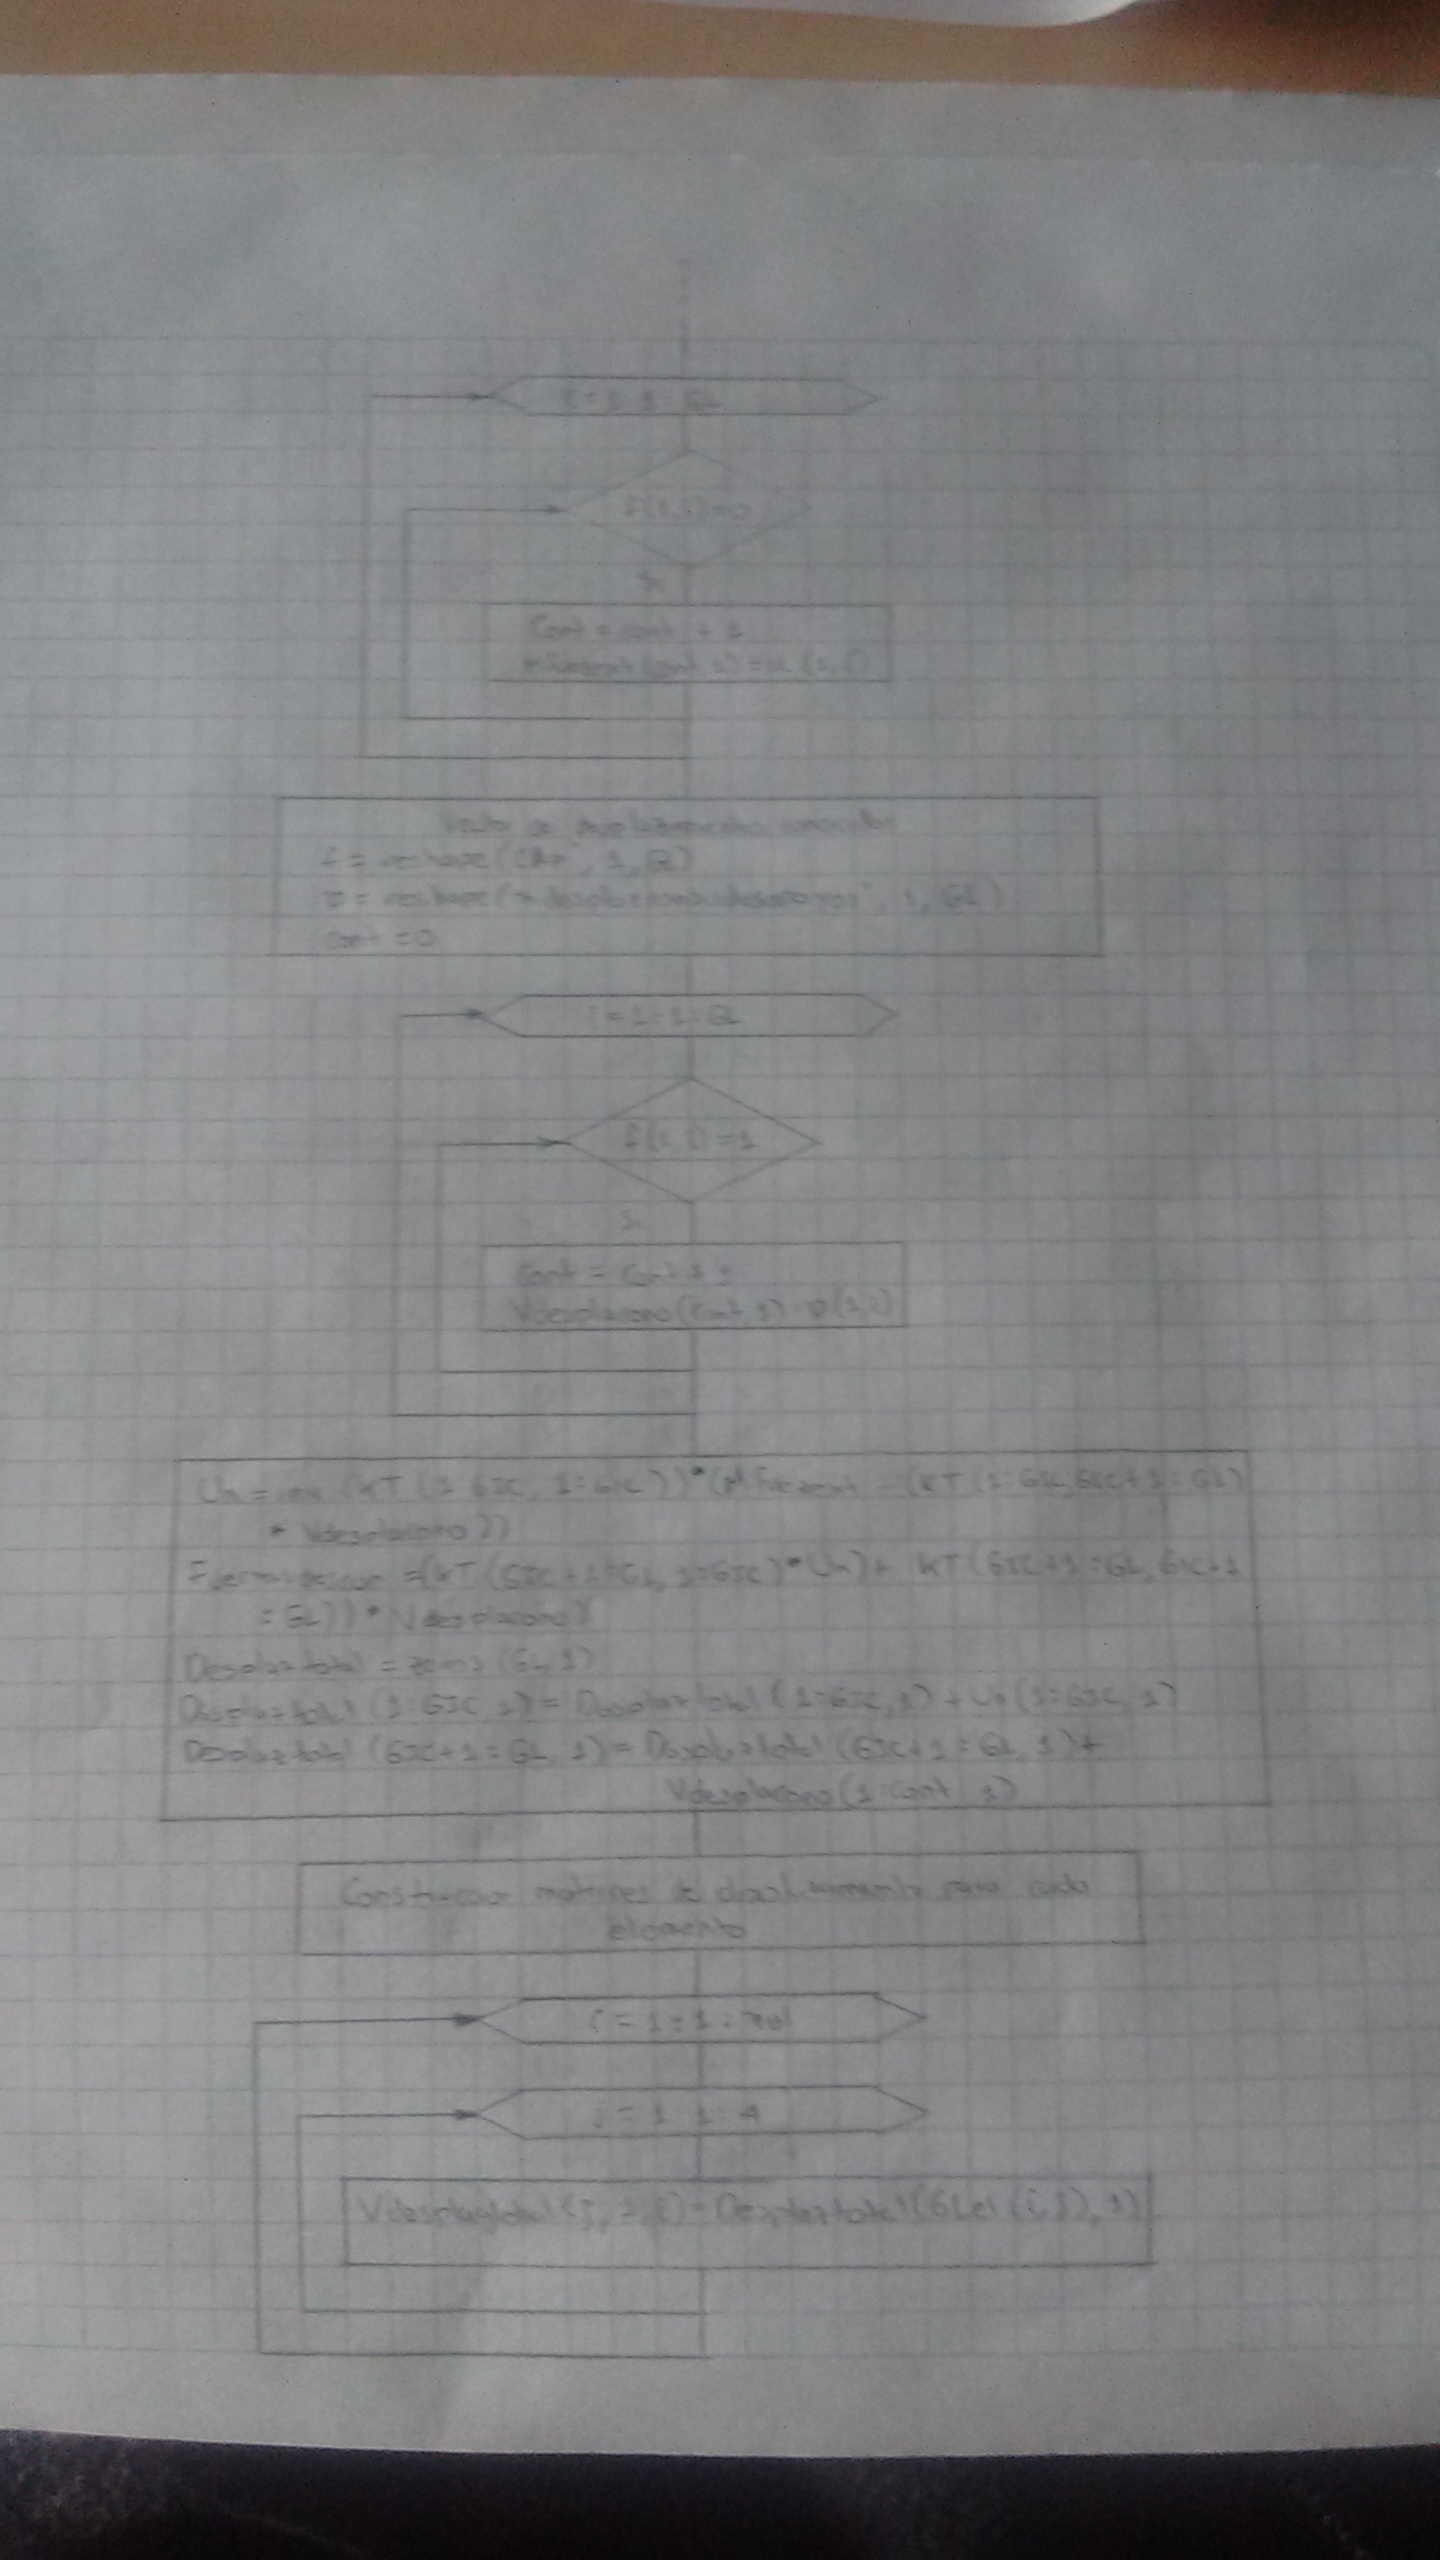 i = 1:1:GL
f(1,i)=0
Si
Cont = cont + 1
(cont,1) = u(1,i)
Vector de desplazamientos conocidos
f = reshape( ', 1, GL)
= reshape( ', 1, GL)
cont = 0
i = 1:1:GL
f(1,i)=1
Si
Cont = Cont + 1
Vdesplacono(Cont,1)=D(1,i)
Un = inv (KT (1:GIC, 1:GIC))*( - (KT(1:GIC,GIC+1:GL)
* Vdesplacono))
=(KT(GIC+1:GL, 1:GIC)*Un)+ KT(GIC+1:GL, GIC+1
:GL))*Vdesplacono)
Desplaztotal = zeros (GL,1)
Desplaztotal (1:GIC,1)= Desplaztotal (1:GIC,1) + Un(1:GIC,1)
Desplaztotal (GIC+1:GL,1)= Desplaztotal (GIC+1:GL,1)+
Vdesplacono(1:cont,1)
Construccion matrices de desplazamiento para cada
elemento
i = 1:1:nel
j = 1:1:4
(j,1,i)=Desplaztotal(GLel(i,j),1)